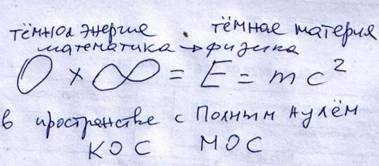 тёмная энергия . тёмная материя
математика → физика
0 × ∞ = E = mc²
в пространстве с Полным нулём
КОС МОС